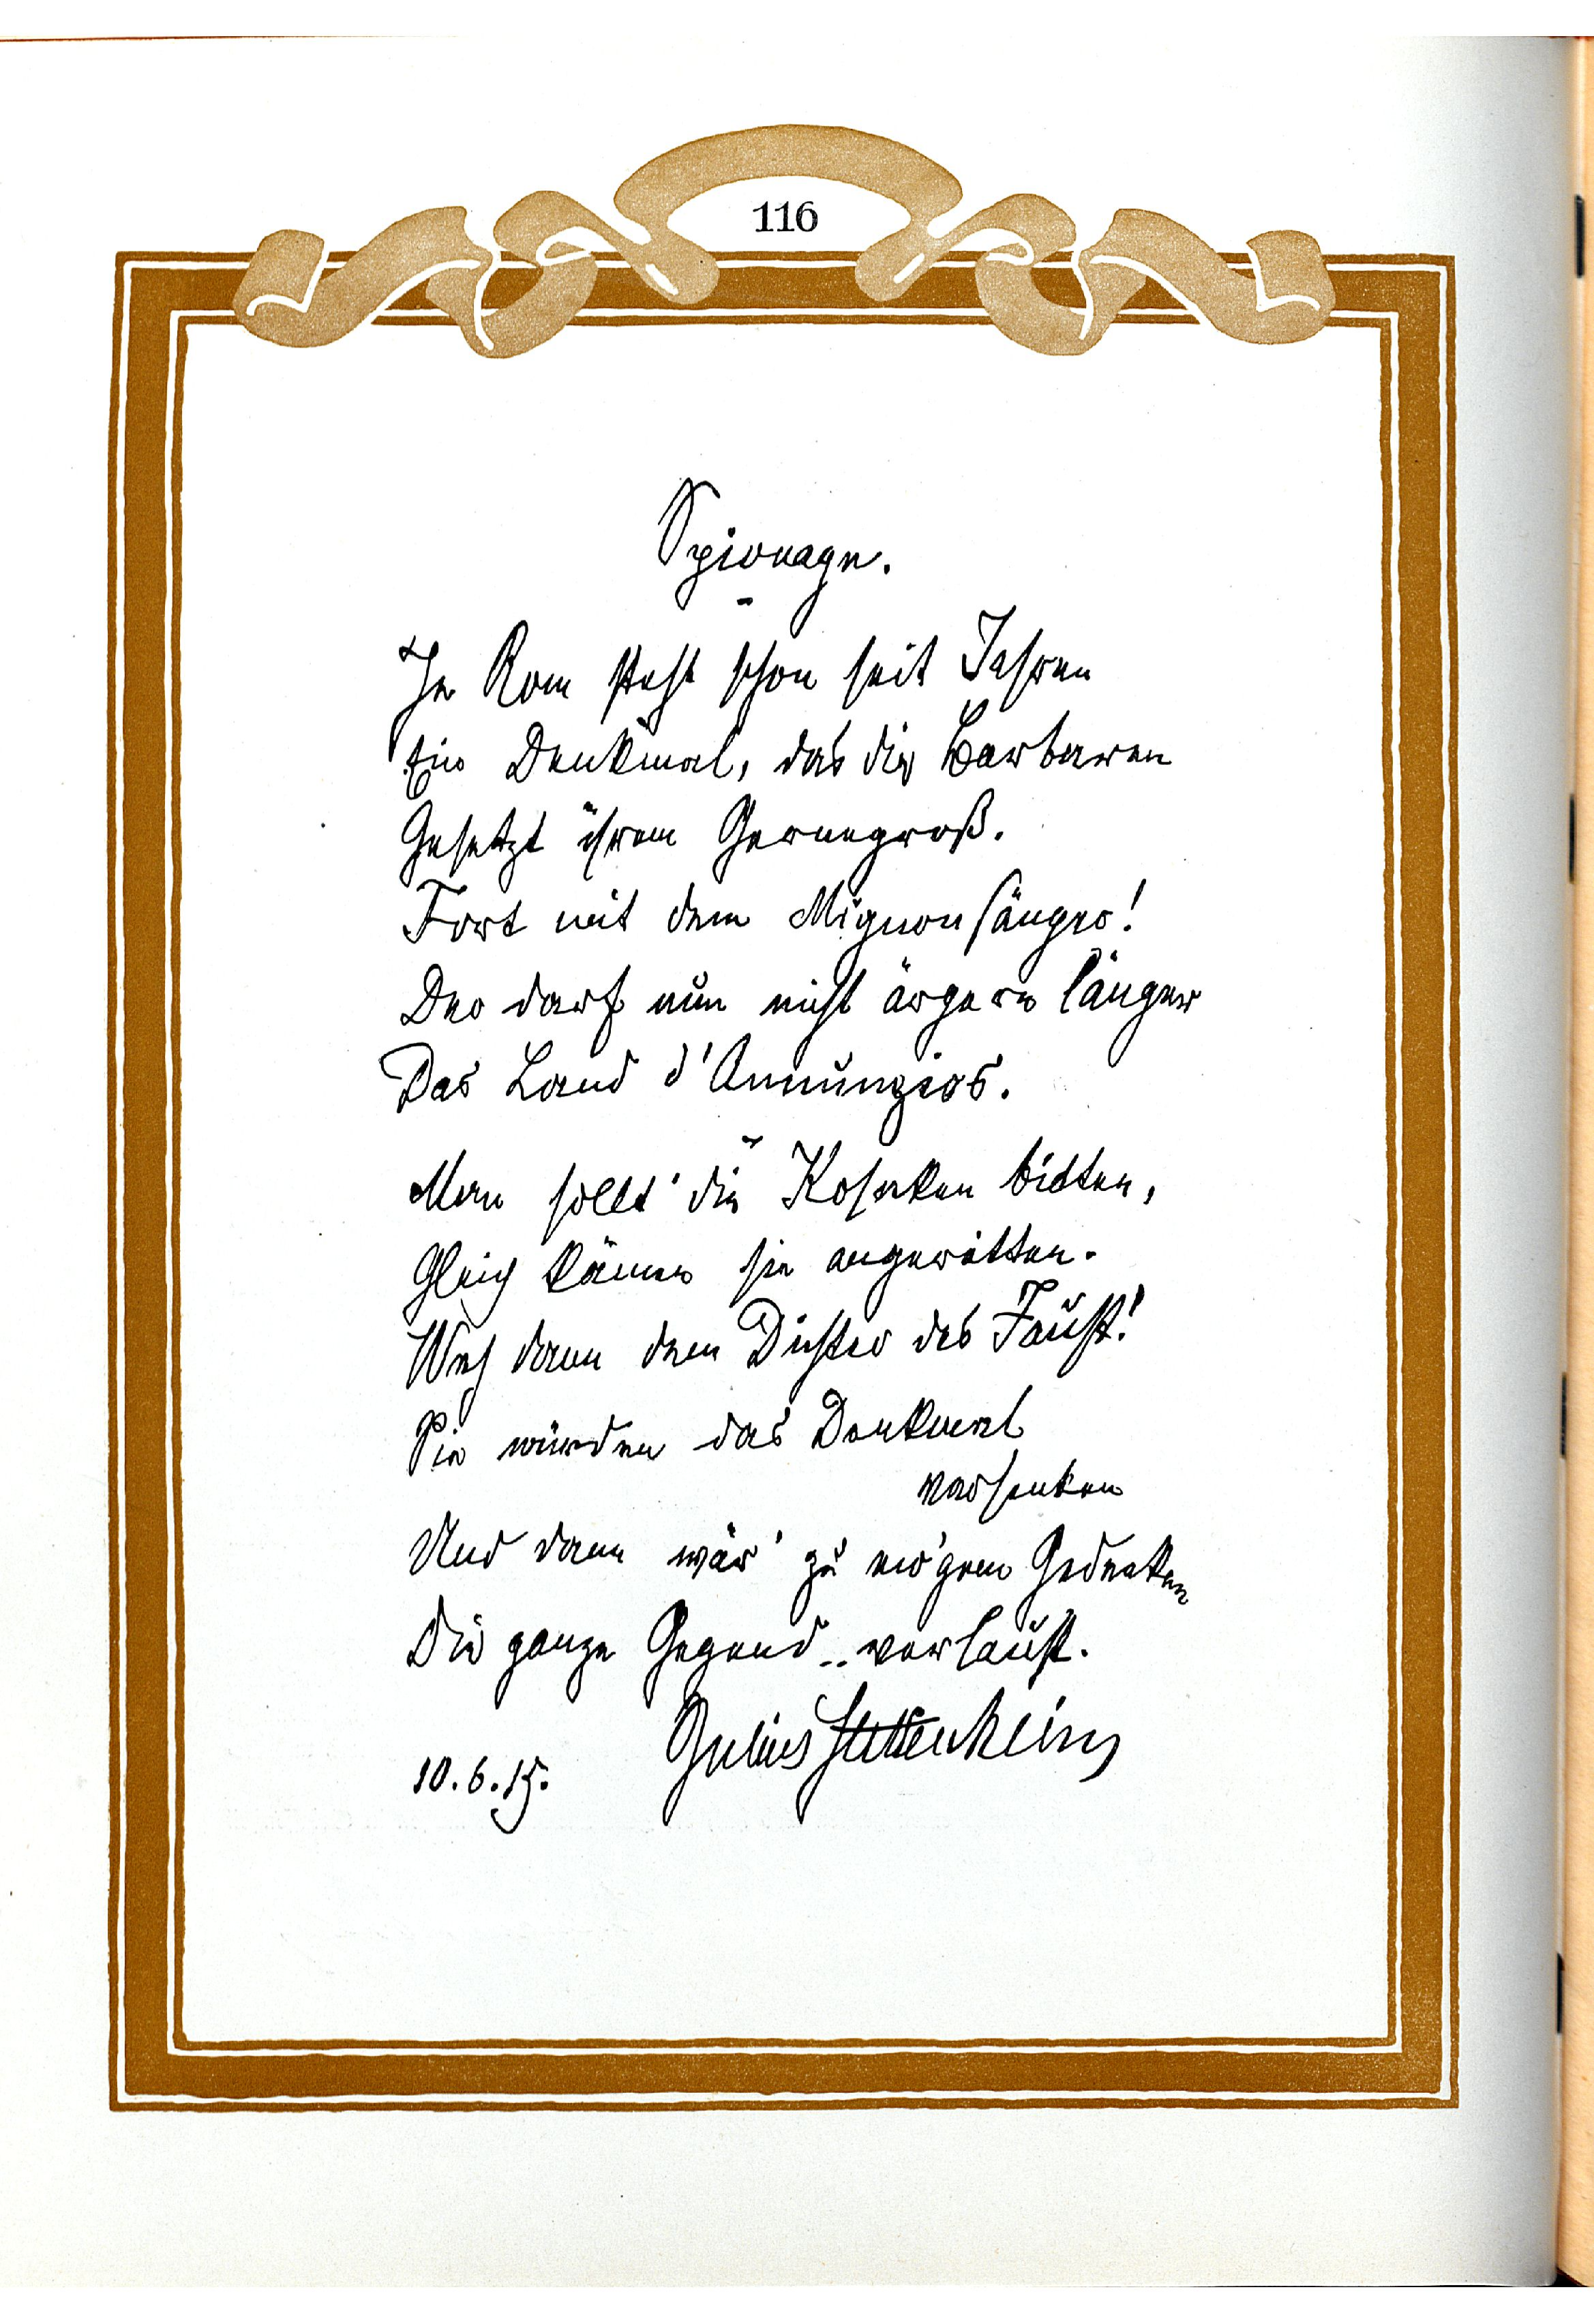 116
Spionage.
In Rom steht schon seit Jahren
Ein Denkmal, das die Barbaren
Gesetzt ihrem Gernegroß.
Fort mit dem Mignonsänger!
Der darf nun nicht ärgern länger
Das Land d'Annunzios.
Man sollt' die Kosaken bitten,
Gleich kämen sie angeritten.
Weh dann dem Dichter des Faust!
Sie würden das Denkmal
versenken
Und dann wär' zu ew'gem Gedenken
Die ganze Gegend .. verlaust.
Julius Stettenheim
10.6.15.